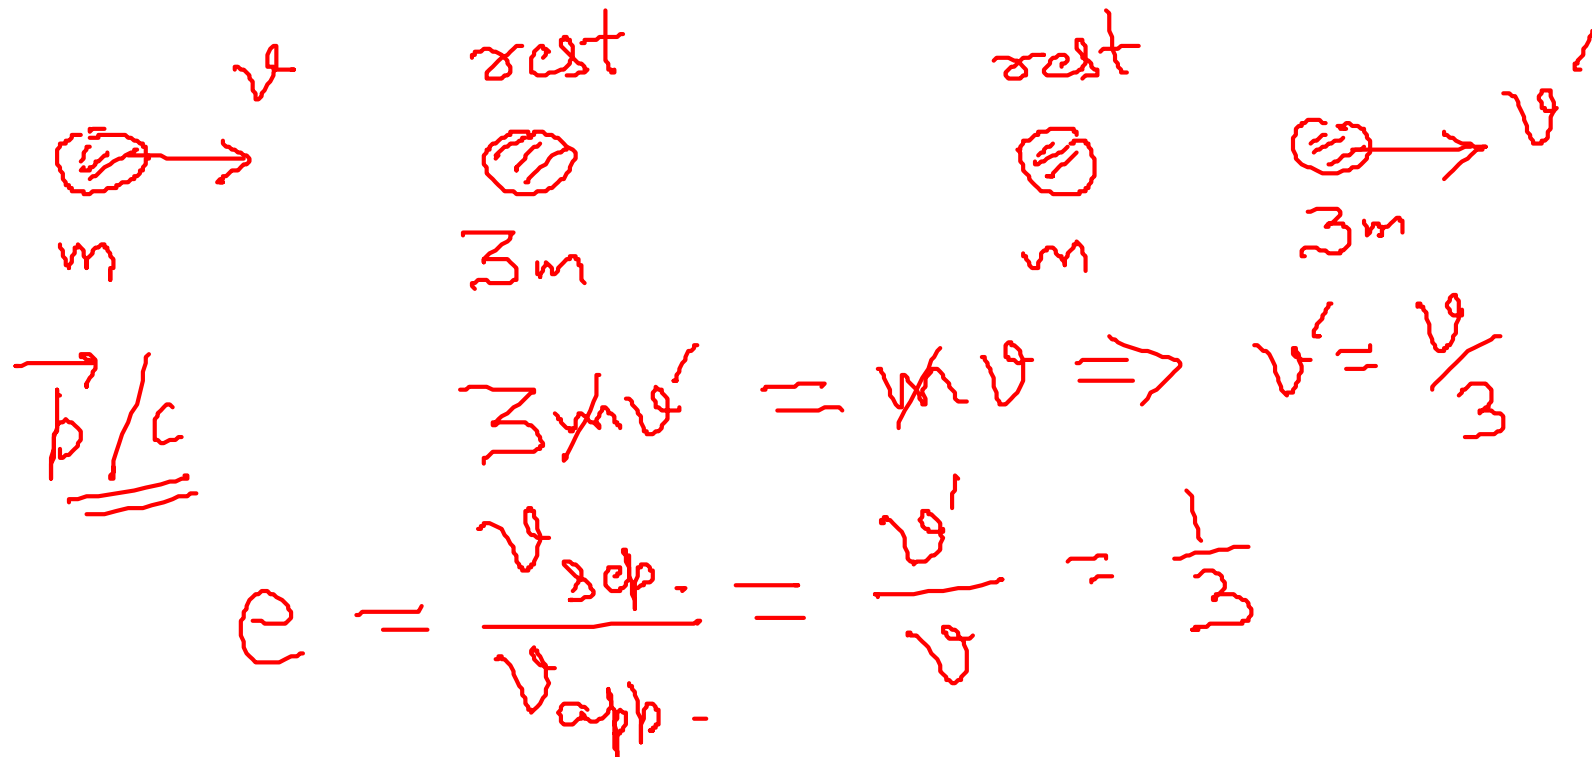 v rest rest v'
m 3m m 3m
b/c 3mv' = mv ⇒ v' = v/3
e = v sep. / v app. = v'/v = 1/3